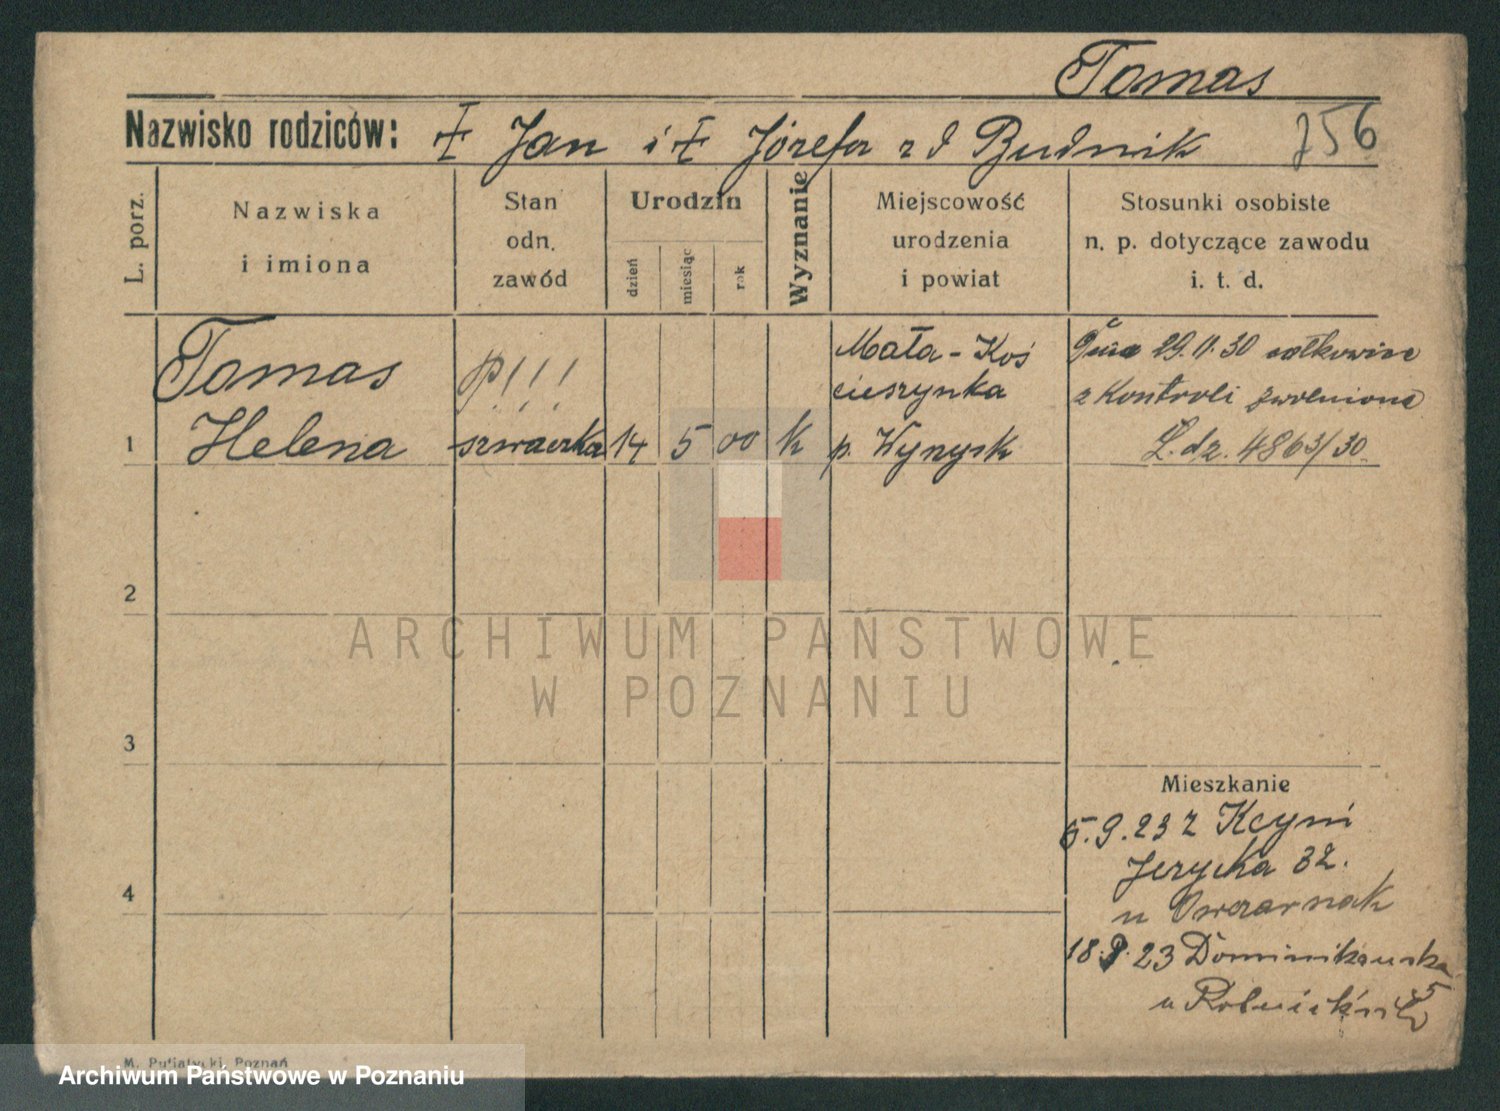 Tomas
Nazwisko rodziców: ‡ Jan i ‡ Józefa z d Budnik
756
L. porz.
Nazwiska
i imiona
Stan
odn.
zawód
Urodzin
dzień
miesiąc
rok
Wyznanie
Miejscowość
urodzenia
i powiat
Stosunki osobiste
n. p. dotyczące zawodu
i. t. d.
1
Tomas
Helena
p!!!
szwaczka
14
5
00
k
Mała-Koś
cieszynka
p. Wyrzysk
29.11.30 całkowice
z Kontroli zwolniona
L.dz. 4863/30
2
3
4
Mieszkanie
5.9.23 z Kcyni
Jerzycka 32.
u Owczarnak
18.9.23 Dominikańska
5
u
ARCHIWUM PAŃSTWOWE
W POZNANIU
M. Putiatycki, Poznań
Archiwum Państwowe w Poznaniu